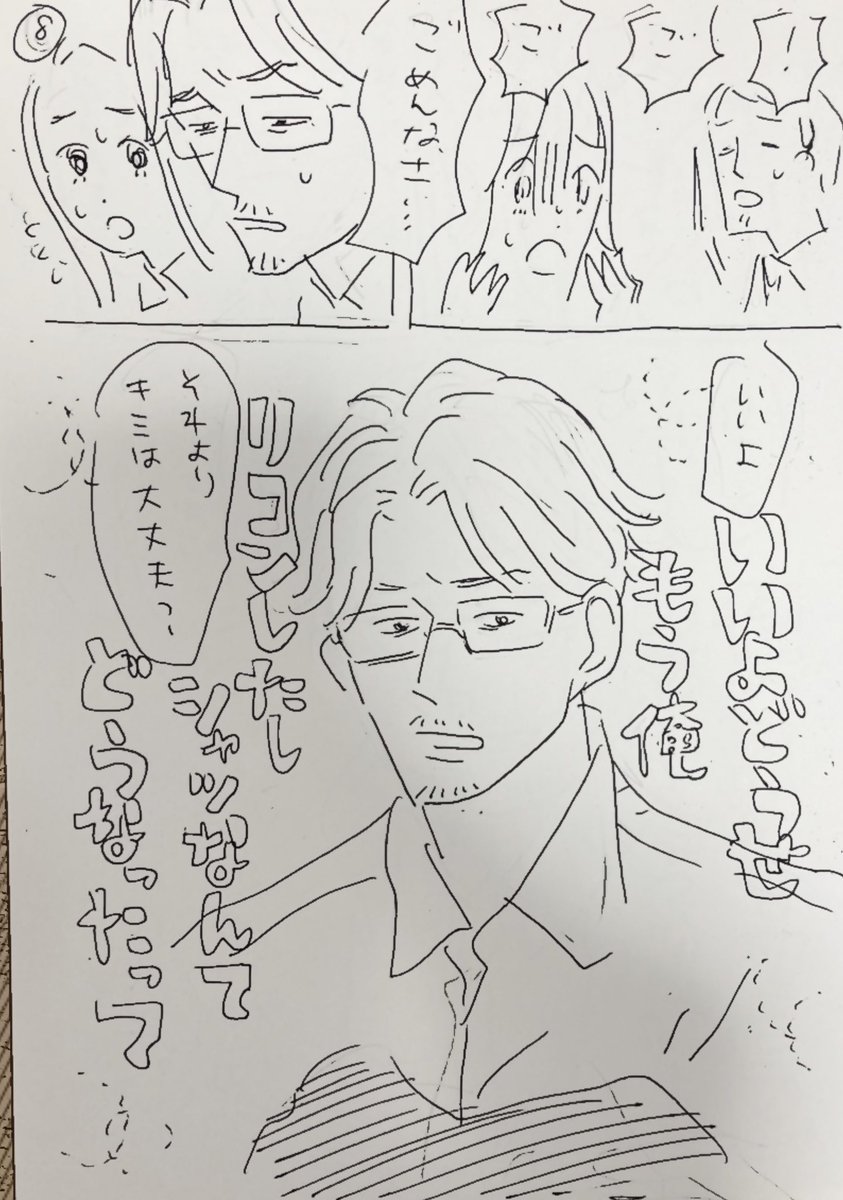 8
!
ご
ご
ごめんなさ…
いいよ
いいよどうせ
もう俺
リコンしたし
シャツなんて
どうなったって
それより
キミは大丈夫っ〜